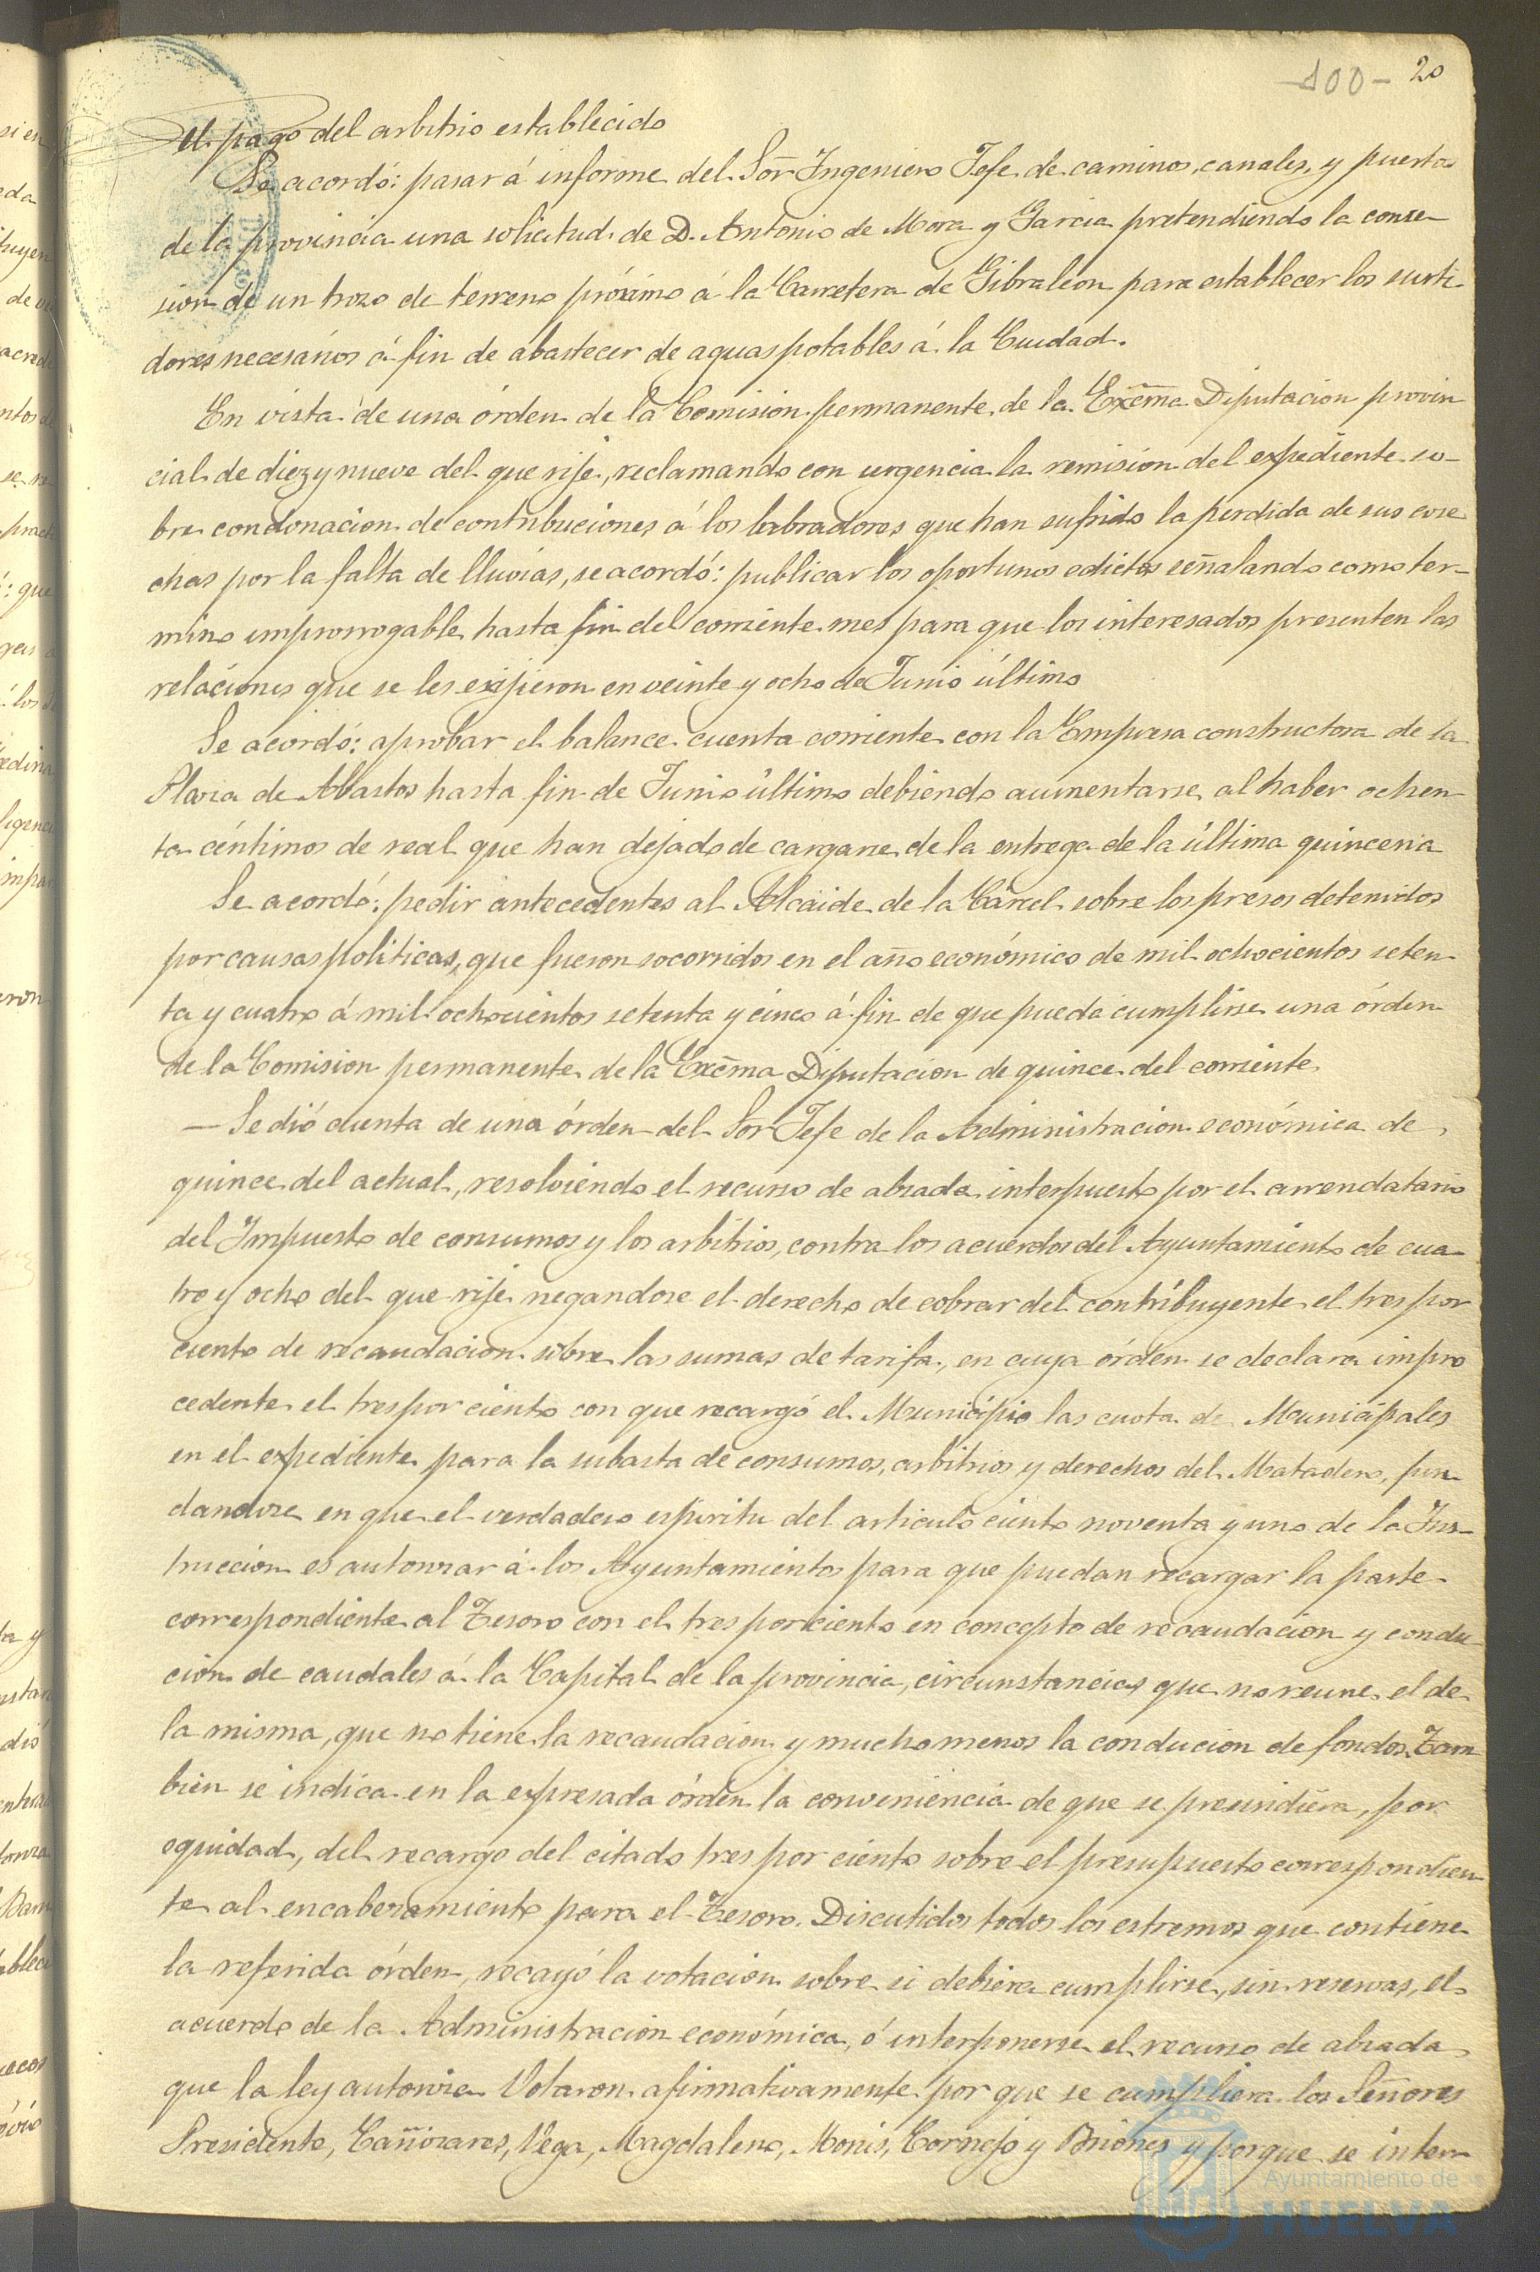 100- 20
el pago del arbitrio establecido
Se acordó: pasar á informe del Sor Ingeniero Jefe de caminos, canales, y puertos
de la provincia una solicitud de D. Antonio de Mora y Garcia pretendiendo la conse-
sion de un trozo de terreno próximo á la Carretera de Gibraleon para establecer los surti-
dores necesários á fin de abastecer de aguas potables á la Ciudad.
En vista de una órden de la Comision permanente de la Excma Diputacion provin
cial de diez y nueve del que rije, reclamando con urgencia la remision del expediente so-
bre condonacion de contribuciones á los labradores que han sufrido la perdida de sus cose
chas por la falta de lluvias, se acordó: publicar los oportunos edictos señalando como ter-
mino improrrogable hasta fin del corriente mes para que los interesados presenten las
relaciones que se les exijieron en veinte y ocho de Junio último
Se acordó: aprobar el balance cuenta corriente con la Empresa constructora de la
Plaza de Abastos hasta fin de Junio último debiendo aumentarse al haber ochen-
ta céntimos de real que han dejado de cargarse de la entrega de la última quincena
Se acordó: pedir antecedentes al Alcaide de la Cárcel sobre los presos detenidos
por causas politicas, que fueron socorridos en el año económico de mil ochocientos seten-
ta y cuatro á mil ochocientos setenta y cinco á fin de que pueda cumplirse una órden
de la Comision permanente de la Excma Diputacion de quince del corriente.
— Se dió cuenta de una órden del Sor Jefe de la Administracion económica de
quince del actual, resolviendo el recurso de alzada interpuesto por el arrendatario
del Impuesto de consumos y los arbitrios, contra los acuerdos del Ayuntamiento de cua-
tro y ocho del que rije negandose el derecho de cobrar del contribuyente el tres por
ciento de recaudacion sobre las sumas de tarifa, en cuya órden se declara impro
cedente el tres por ciento con que recargó el Municipio las cuota de Municipales
en el expediente para la subasta de consumos, arbitrios y derechos del Matadero, fun-
dandose en que el verdadero espiritu del articulo ciento noventa y uno de la Ins-
truccion es autorizar á los Ayuntamientos para que puedan recargar la parte
correspondiente al Tesoro con el tres por ciento en concepto de recaudacion y condu-
cion de caudales á la Capital de la provincia, circunstancias que no reune el de
la misma, que no tiene la recaudacion y mucho menos la conducion de fondos. Tam
bien se indica en la expresada órden la conveniencia de que se prescindiera, por
equidad, del recargo del citado tres por ciento sobre el presupuesto correspondien-
te al encabezamiento para el Tesoro. Discutidos todos los estremos que contiene
la referida órden, recayó la votacion sobre si debiera cumplirse, sin reservas, el
acuerdo de la Administracion económica, ó interponerse el recurso de alzada
que la ley autoriza. Votaron afirmativamente por que se cumpliera los Señores
Presidente, Cañizares, Vega, Magdaleno, Monis, Cornejo y Briones y porque se inter-
Ayuntamiento de
HUELVA